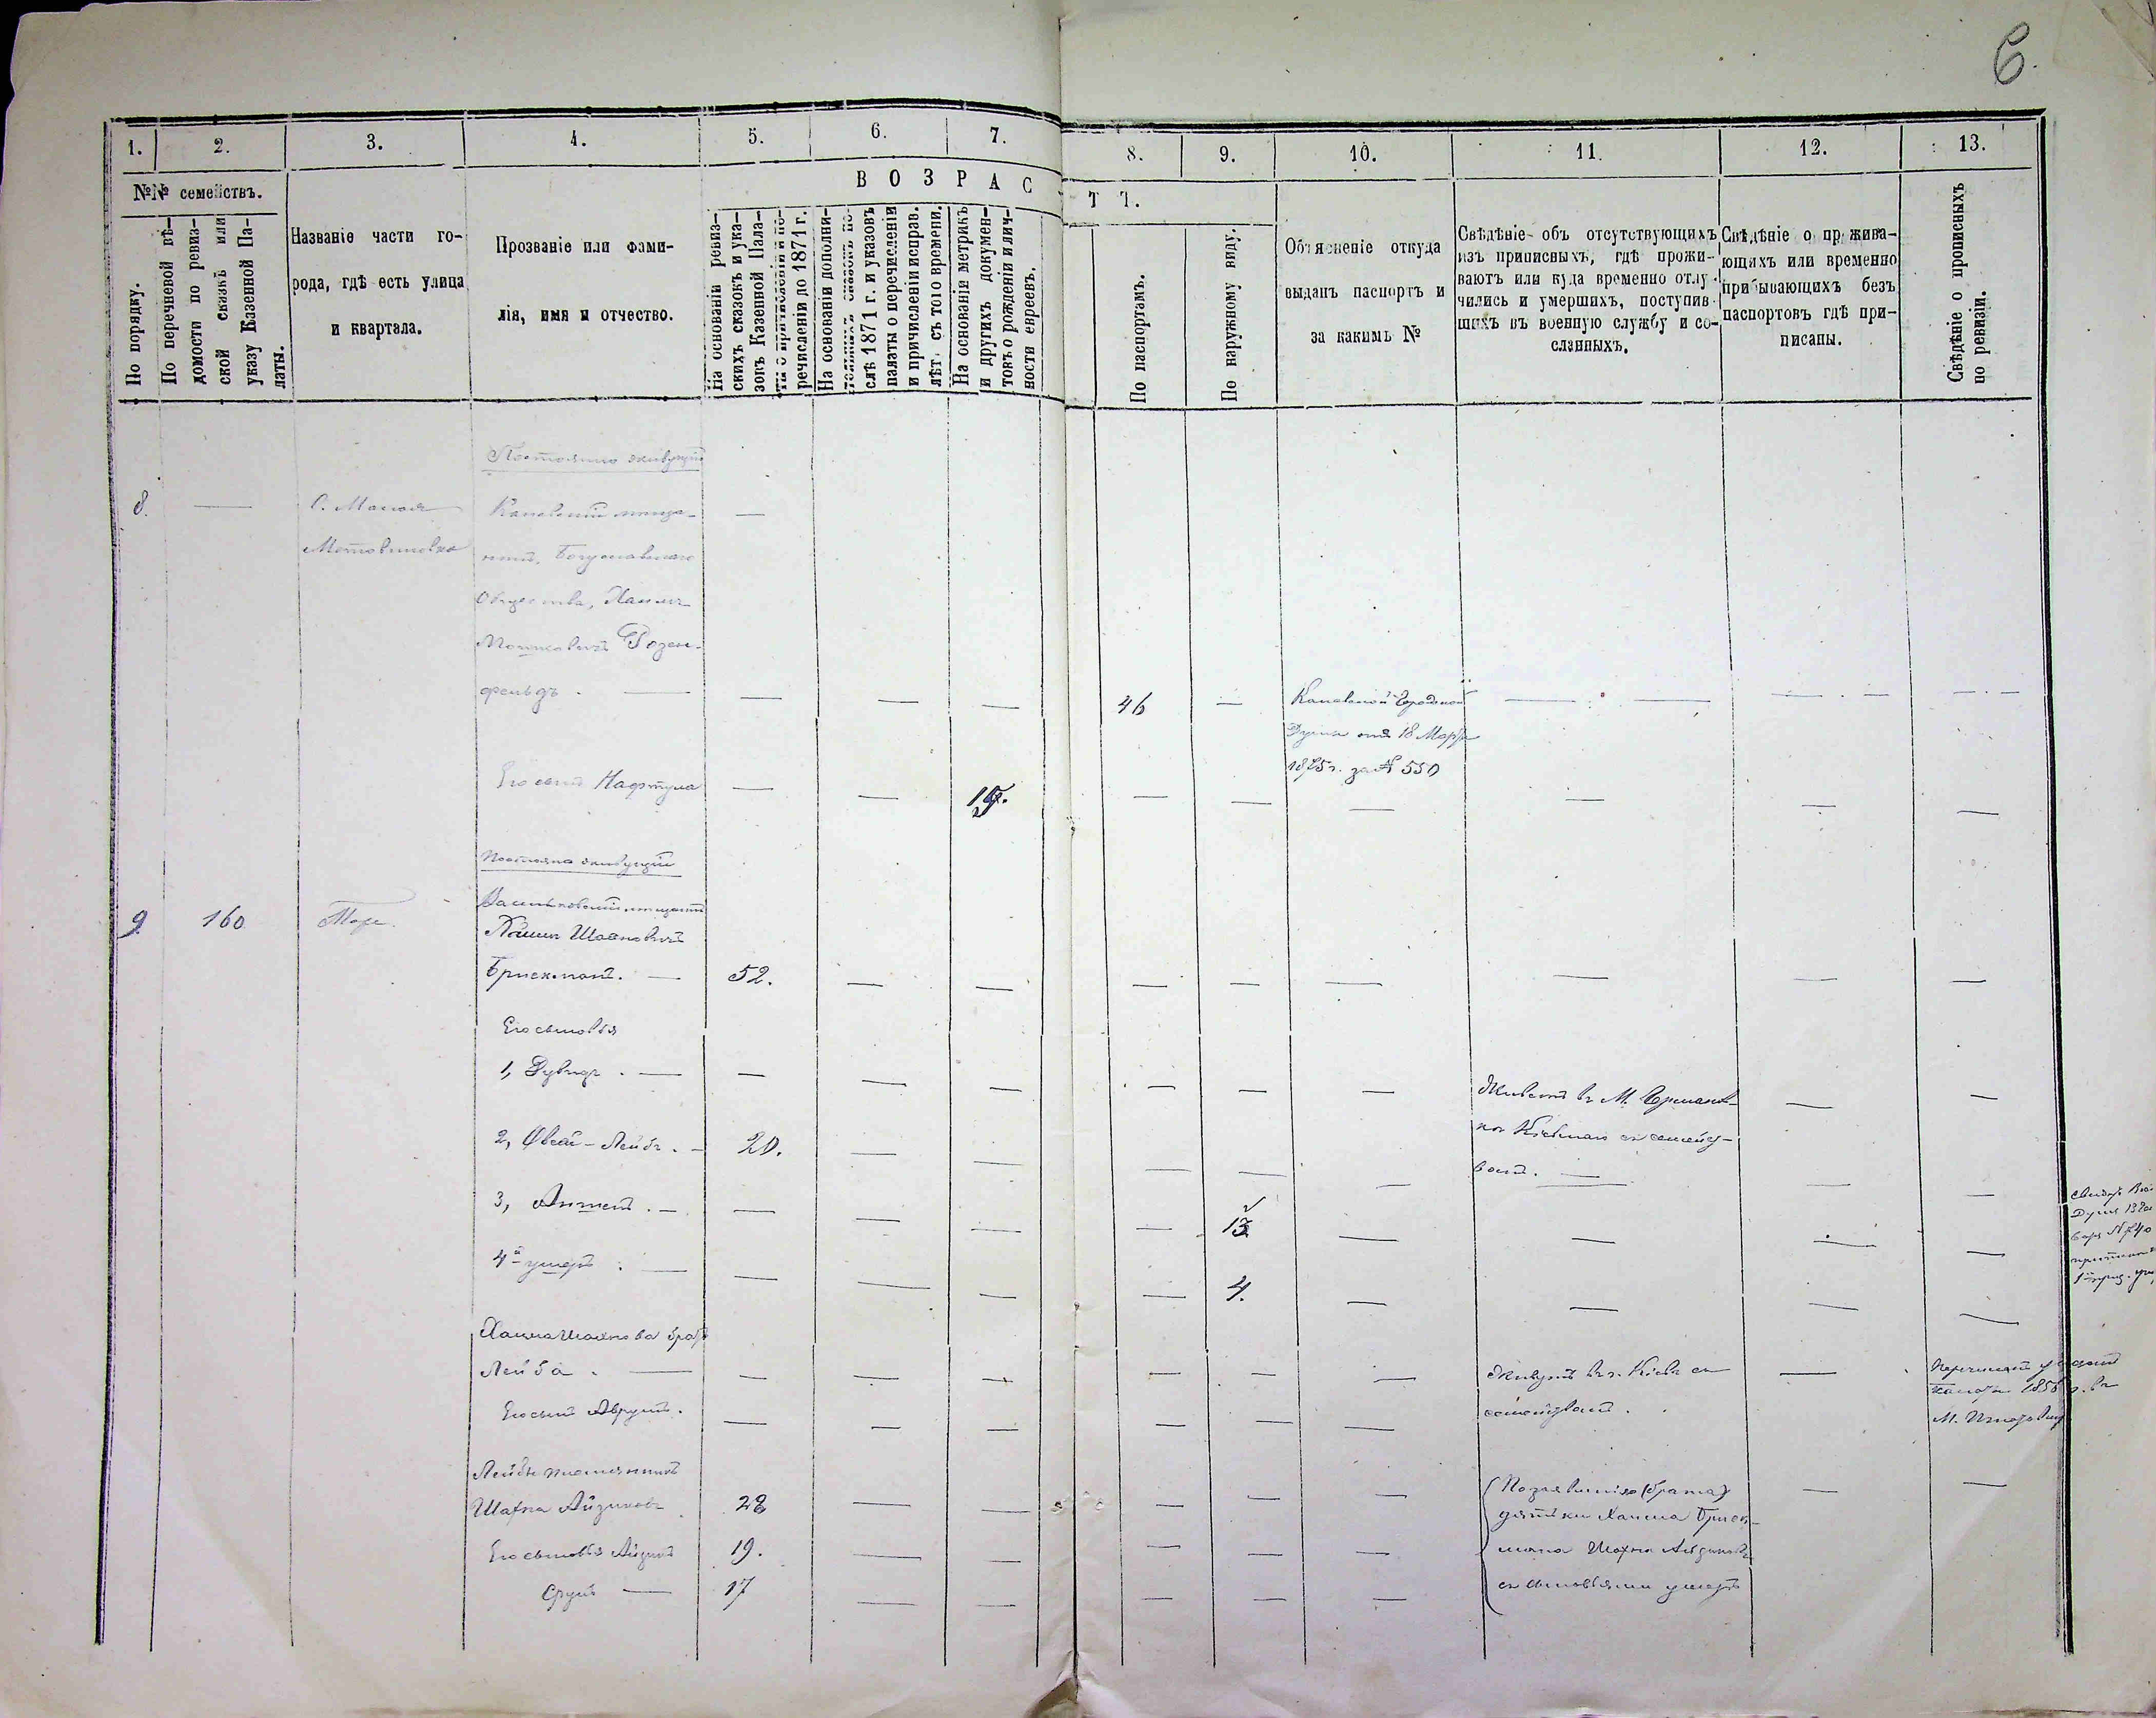 6.
1. 2. 3. 4. 5. 6. 7. 8. 9. 10. 11. 12. 13.
№№ семействъ.
ВОЗРАСТЪ.
По порядку.
По перечневой вѣ-
домости по ревиз-
ской сказкѣ или
указу Казенной Па-
латы.
Названіе части го-
рода, гдѣ есть улица
и квартала.
Прозваніе или фами-
лія, имя и отчество.
На основаніи ревиз-
скихъ сказокъ и ука-
зовъ Казенной Пала-
ты о причисленіи и пе-
речисленіи до 1871 г.
На основаніи дополни-
слѣ 1871 г. и указовъ
палаты о перечисленіи
и причисленіи исправ.
лѣтъ съ того времени.
На основаніи метрикъ
и другихъ докумен-
товъ о рожденіи и лич-
ности евреевъ.
По паспортамъ.
По наружному виду.
Объясненіе откуда
выданъ паспортъ и
за какимъ №
Свѣдѣніе объ отсутствующихъ
изъ приписныхъ, гдѣ прожи-
ваютъ или куда временно отлу-
чились и умершихъ, поступив-
шихъ въ военную службу и со-
сланныхъ.
Свѣдѣніе о прожива-
ющихъ или временно
прибывающихъ безъ
паспортовъ гдѣ при-
писаны.
Свѣдѣніе о прописныхъ
по ревизіи.
Постоянно живущіе
8. — С. Малая Каневскій мѣща- —
Мотовиловка нинъ, Богуславскаго
Общества, Хаимъ
Мошковичъ Розен-
фельдъ . — — — — 46 — Каневской Городской — — —
Думы отъ 18 Марта
1875 г. за № 550
Его сынъ Нафтула — — — — — — — —
Постоянно живущіе
9. 160 Тоже. Васильковскій мѣщанинъ
Хаимъ Шахновичъ
Брискманъ. — 52. — — — — — — — —
Его сыновья
1, Дувидъ . — — — — — — — Живетъ въ М. Германов- — —
2, Овсей-Лейбъ . — 20. — — — — — кѣ Кіевскаго съ семейст-
вомъ. — — —
3, Аншель . — — — — — 13 — — — —
4й умеръ . — — — — — 4. — — — —
Хаима Шахнова братъ
Лейба . — — — — — — — Живутъ въ г. Кіевѣ съ —
Его сынъ Аврумъ . — — — — — — семействомъ .
1856 г. въ
М.
Лейбы племянникъ
Шахна Айзиковъ 28 — — — — — По заявленію (брата) — —
дятьки Хаима Бриск-
Его сыновья Айзикъ 19. — — — — — мана Шахна Айзиковъ
Сруль — 17 — — — — — съ сыновьями умеръ